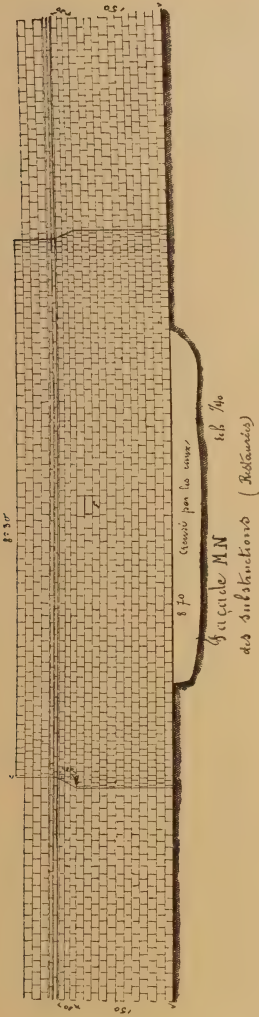 8=30
8 70 Creusé par les eaux.
Façade MN
ech 1/40
des substructions (Restaurées)
1,50
1,50